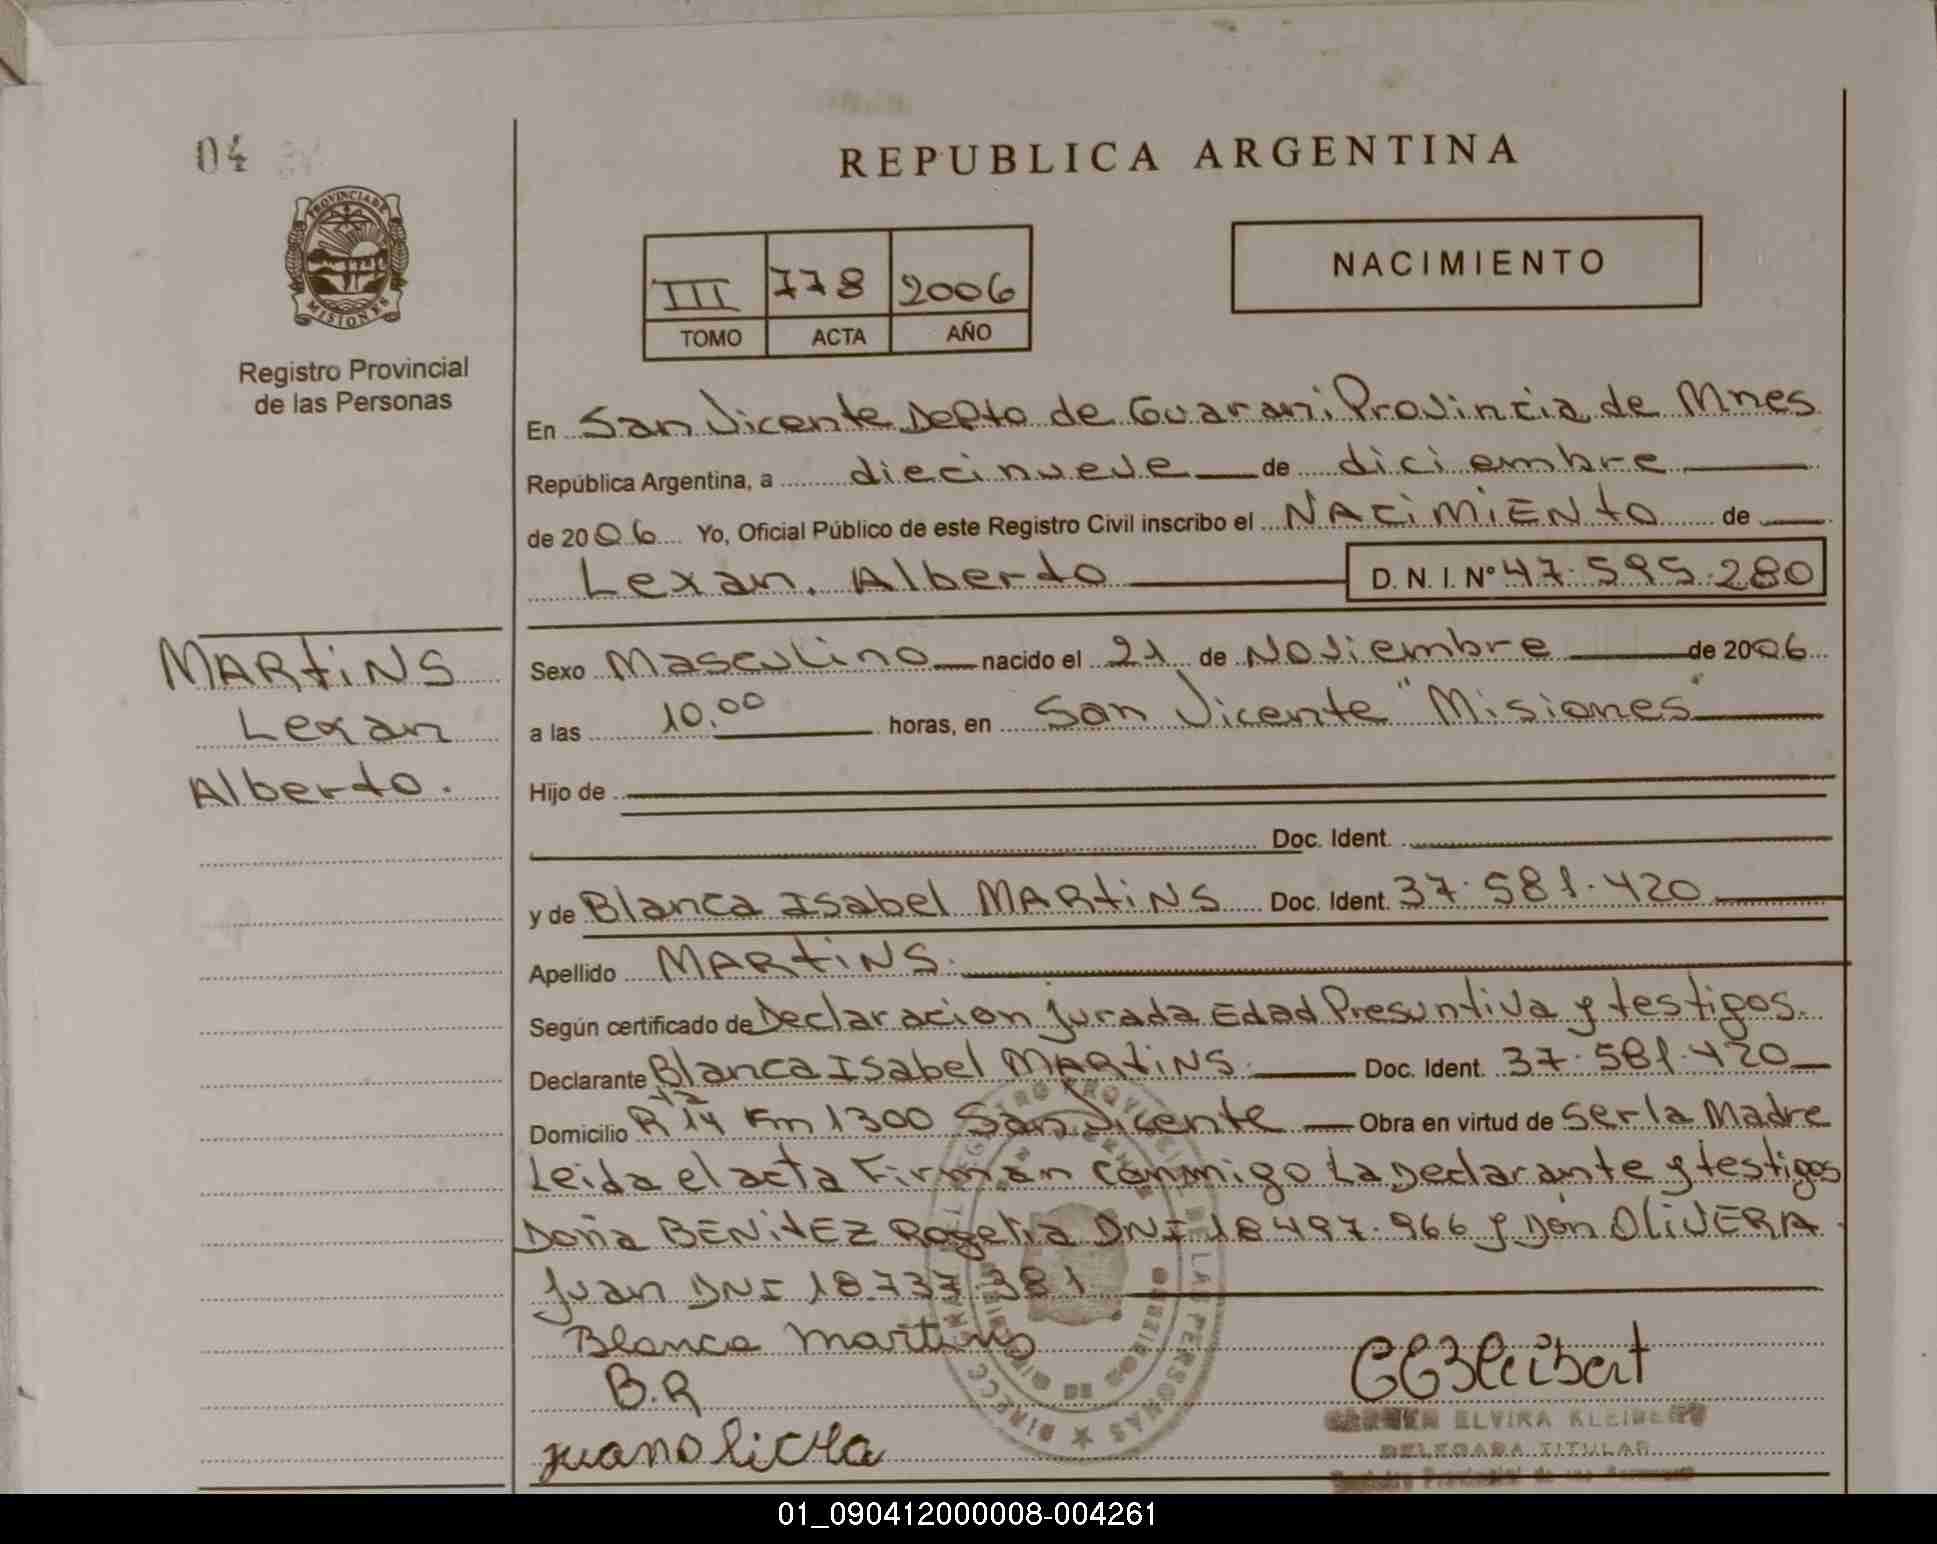 04
REPUBLICA ARGENTINA
PROVINCIA DE
MISIONES
Registro Provincial
de las Personas
III 778 2006
TOMO ACTA AÑO
NACIMIENTO
En San Vicente Depto de Guarani Provincia de Mnes
República Argentina, a diecinueve de diciembre
de 2006 Yo, Oficial Público de este Registro Civil inscribo el NACiMiENto de
Lexan. Alberto D. N. I. Nº 47.595.280
MARtiNS
Lexan
Alberto.
Sexo Masculino nacido el 21 de Noviembre de 2006
a las 10,00 horas, en San Vicente "Misiones"
Hijo de
Doc. Ident.
y de Blanca Isabel MARtiNS Doc. Ident. 37.581.420
Apellido MARtiNS.
Según certificado de Declaracion jurada Edad Presuntiva y testigos.
Declarante Blanca Isabel MARtiNS. Doc. Ident. 37.581.420
Domicilio R 14 Km 1300 San Vicente Obra en virtud de Ser la Madre
Leida el acta Firman conmigo La Declarante y testigos
Doña BENitEZ Rogelia DNI 18.497.966 y Don OliVERA
Juan DNI 18.737.381
Blanca Martins
B.R
CARMEN ELVIRA KLEIBERT
DELEGADA TITULAR
Registro Provincial de las Personas
01_090412000008-004261